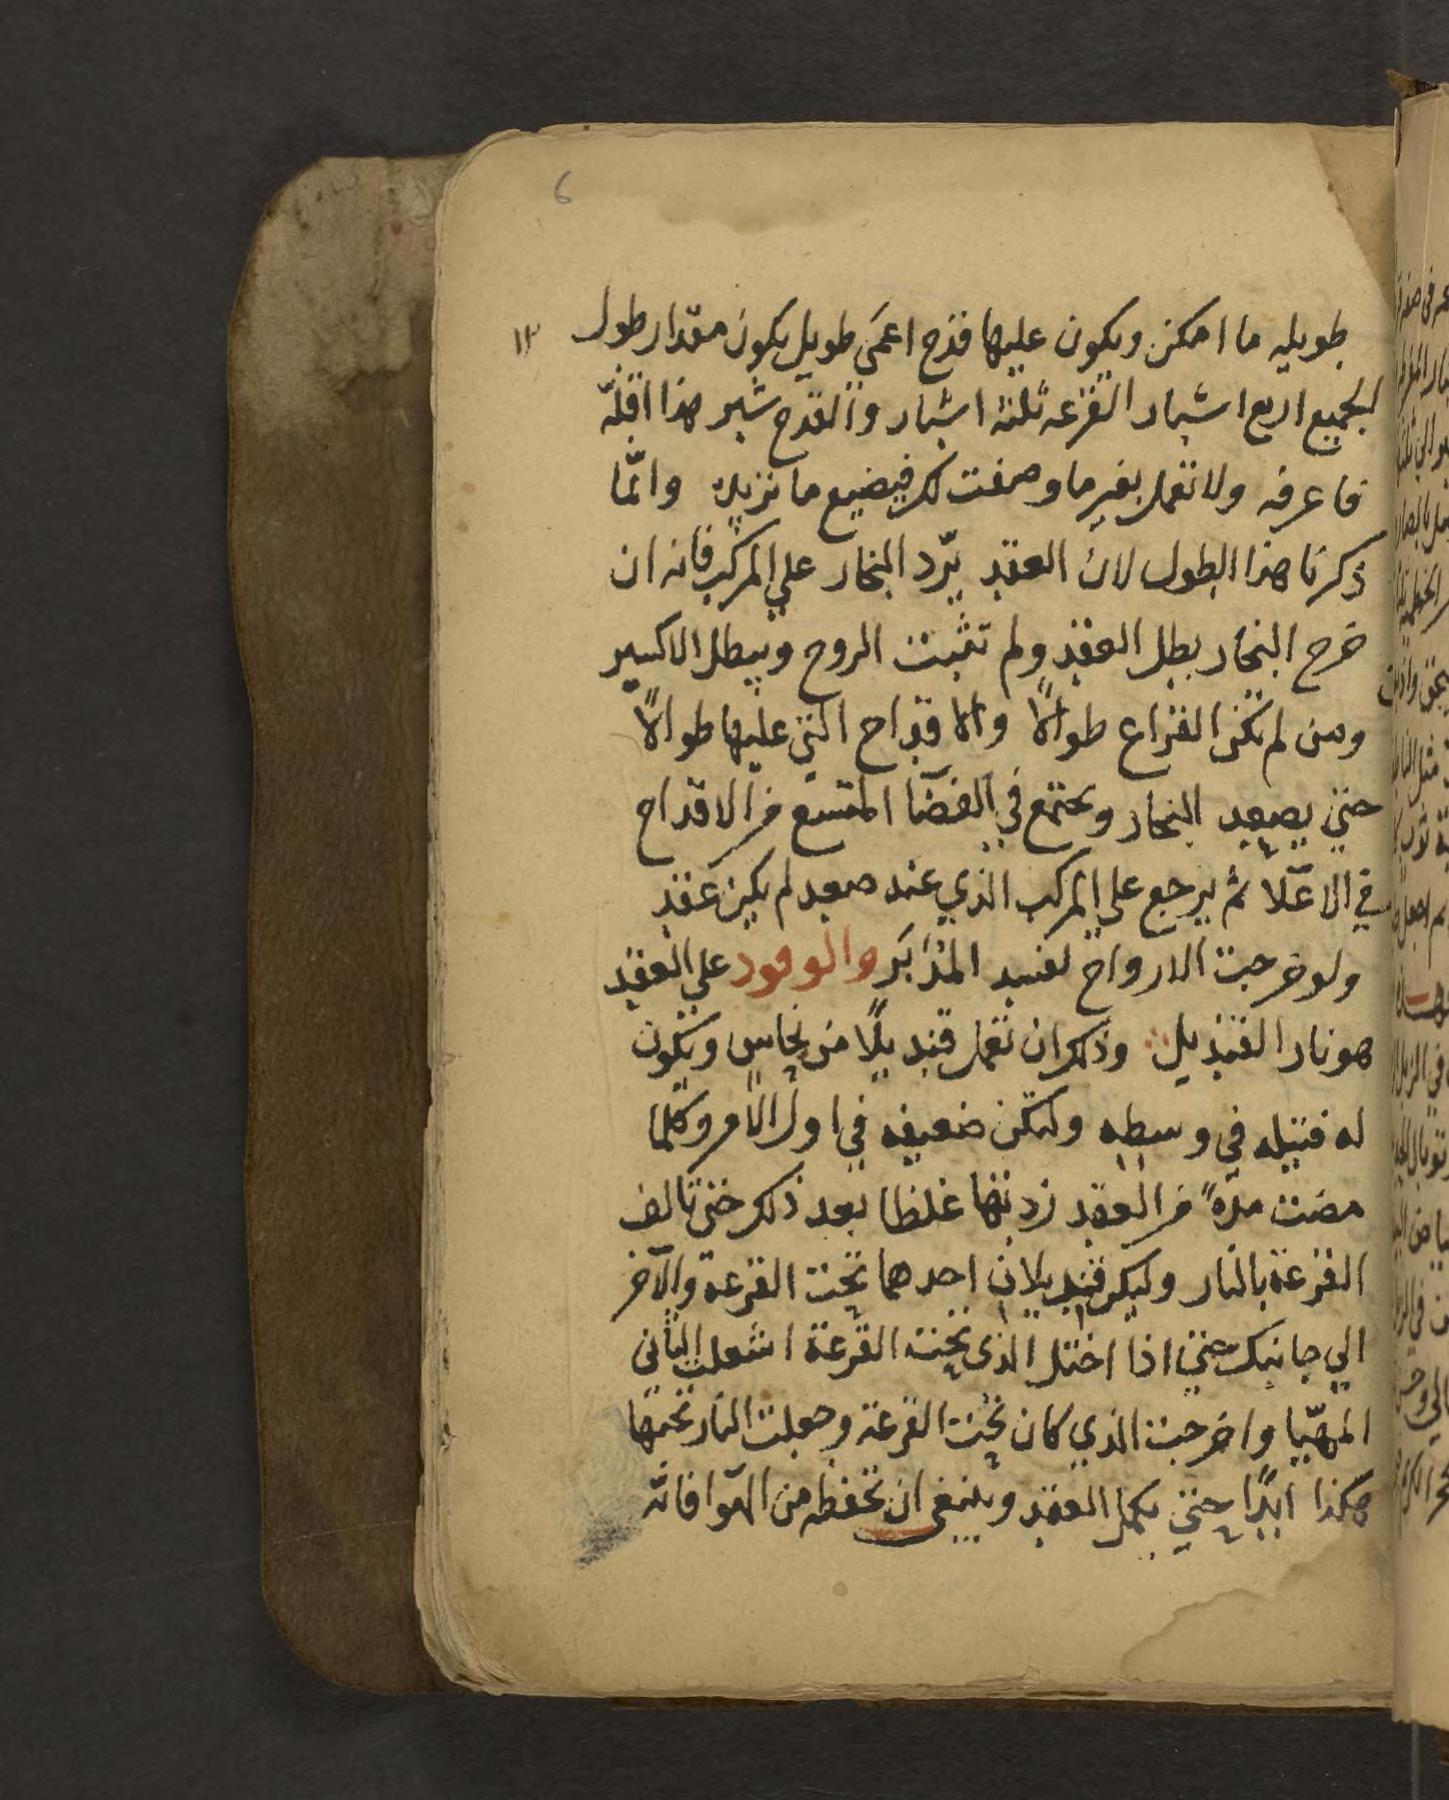 6
١٣
طويله ما امكن ويكون عليها قدح اعمَى طويل يكون مقدار طول
الجميع اربع اشبار القرعه ثلثة اشبار والقدح شبر هذا اقلّه
فاعرفه ولا تعمل بغير ما وصفت لك فيضيع ما تريد وانّما
ذكرنا هذا الطول لان العقد يرّد البخار علي المركب فانه ان
خرج البخار بطل العقد ولم تثبت الروح ويبطل الاكسير
ومن لم تكن القراع طوالًا والاقداح التي عليها طوالًا
حتي يصعد البخار ويجتمع في الفضآ المتسع من الاقداح
في الاعلا ثم يرجع علي المركب الذي عنه صعد لم يكن عقد
ولو خرجت الارواح لفسد المدَابَر والوقود علي العقد
هو نار القنديل وذلك ان تعمل قنديلًا من نحاس ويكون
له فتيله في وسطه ولتكن ضعيفه في اول الامر وكلما
مضت مدّةً من العقد زدتها غلظا بعد ذلك حتى تالف
القرعة بالنار وليكن قنديلان احدهما تحت القرعة والآخر
الي جانبك حتي اذا اختل الذى تحت القرعة اشعلت الثانى
المهيّا واخرجت الذي كان تحت القرعة وجعلت النار تحتها
هكذا ابدًا حتي يكمل العقد وينبغى ان تحفظه من الهوا فانّه